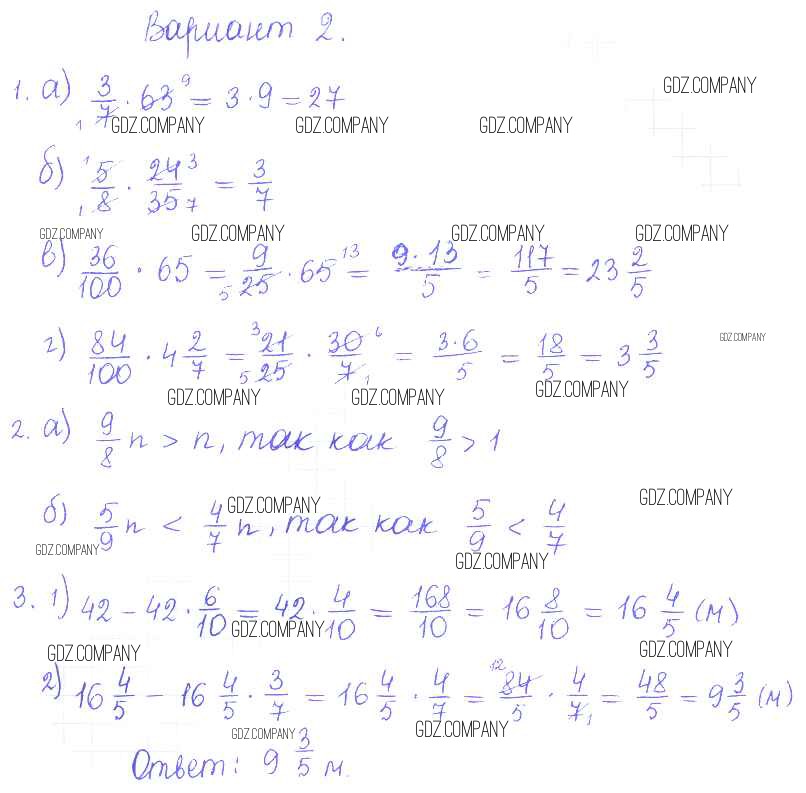 Вариант 2.
1. а) 3/7 · 63 9 = 3 · 9 = 27
1
GDZ.COMPANY
GDZ.COMPANY GDZ.COMPANY GDZ.COMPANY
б) 1 5/8 1 · 24 3/35 7 = 3/7
GDZ.COMPANY GDZ.COMPANY GDZ.COMPANY GDZ.COMPANY
в) 36/100 · 65 = 9/25 5 · 65 13 = 9·13/5 = 117/5 = 23 2/5
г) 84/100 · 4 2/7 = 3 21/25 5 · 30 6/7 1 = 3·6/5 = 18/5 = 3 3/5
GDZ.COMPANY
GDZ.COMPANY GDZ.COMPANY GDZ.COMPANY
2. а) 9/8 n > n, так как 9/8 > 1
GDZ.COMPANY GDZ.COMPANY
б) 5/9 n < 4/7 n, так как 5/9 < 4/7
GDZ.COMPANY GDZ.COMPANY
3. 1) 42 – 42 · 6/10 = 42 · 4/10 = 168/10 = 16 8/10 = 16 4/5 (м)
GDZ.COMPANY
GDZ.COMPANY GDZ.COMPANY
2) 16 4/5 – 16 4/5 · 3/7 = 16 4/5 · 4/7 = 12 84/5 · 4/7 1 = 48/5 = 9 3/5 (м)
GDZ.COMPANY GDZ.COMPANY
Ответ: 9 3/5 м.